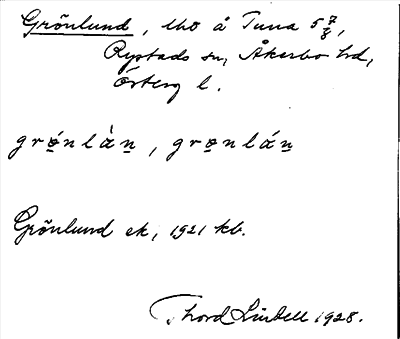 Grönlund, tho å Tuna 5 7/8,
Rystads sn, Åkerbo hd,
Österg l.
grǿnlàn, grønlán
Grönlund ek, 1921 kb.
Thord Lindell 1928.